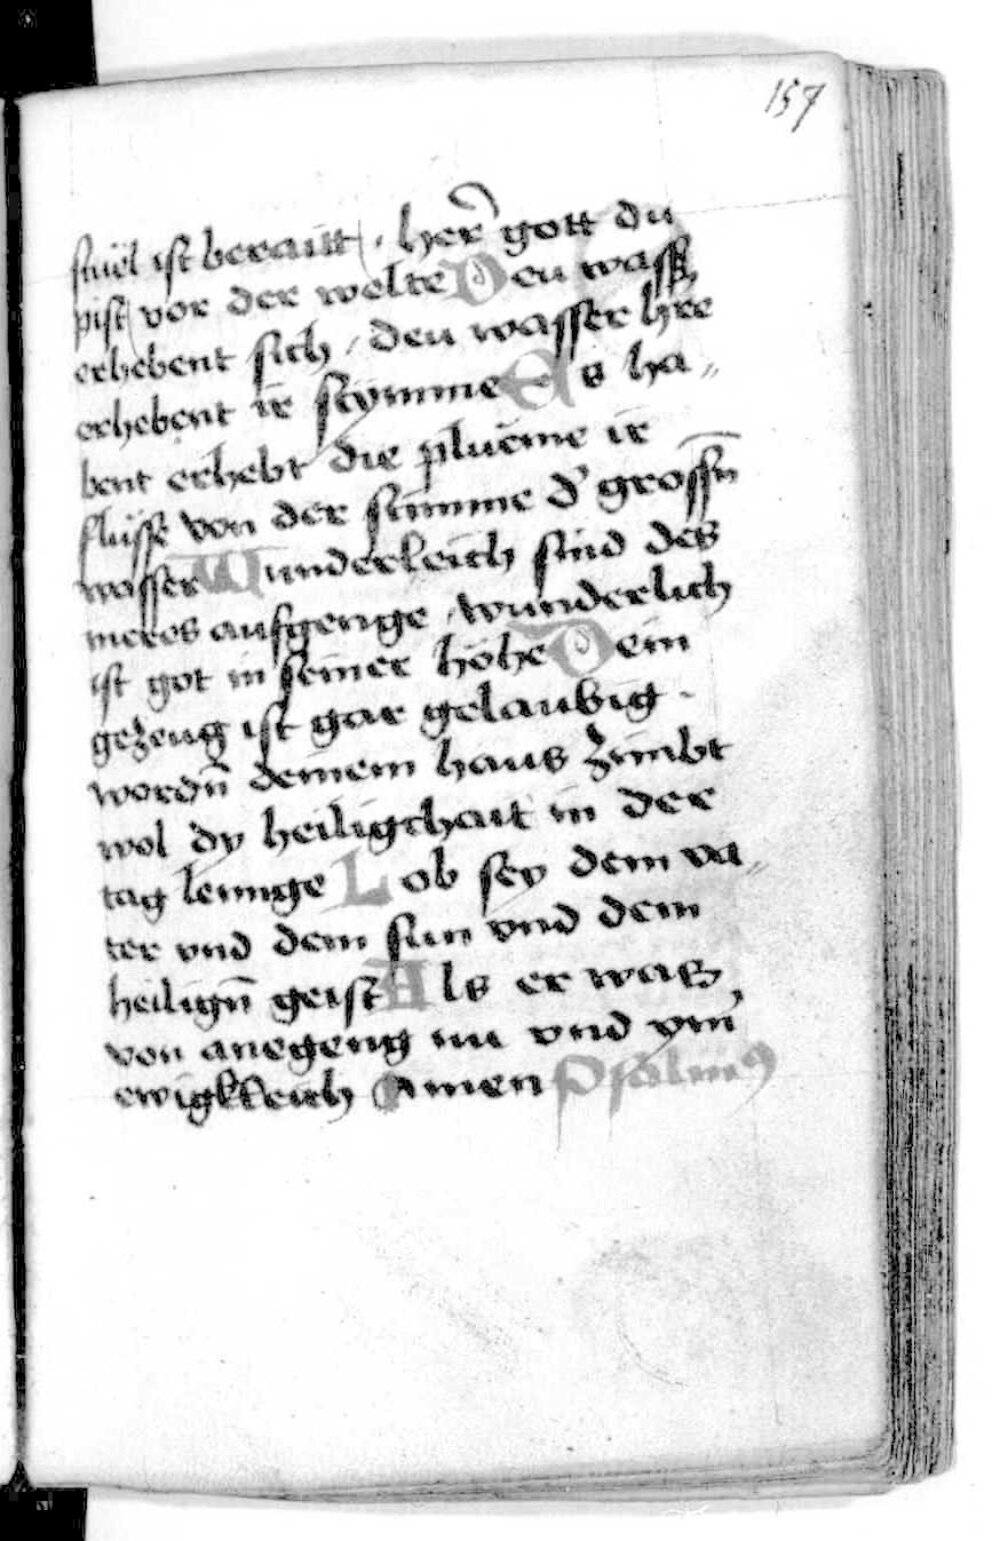 157
stuel ist berautt, her̄ gott du
pist vor der welte Den wass̄
erhebent sich, den wasser hre
erhebent ir stymme Es ha„
bent erhebt die pluёme ir
flüsse von der stimme d' grossn̄
wasser Wunderleich sind des
meres aufgenge, wunderlich
ist got in seiner höhe Dein
gezeug ist gar gelaubig.
wordn̄ deinem haus zimbt
wol dy heiligthait in der
tag lennge Lob sey dem va„
ter vnd dem sun vnd dem
heilign̄ geist Als er was,
von anegeng nu vnd ym̄
ewigkleich Amen Psalmus